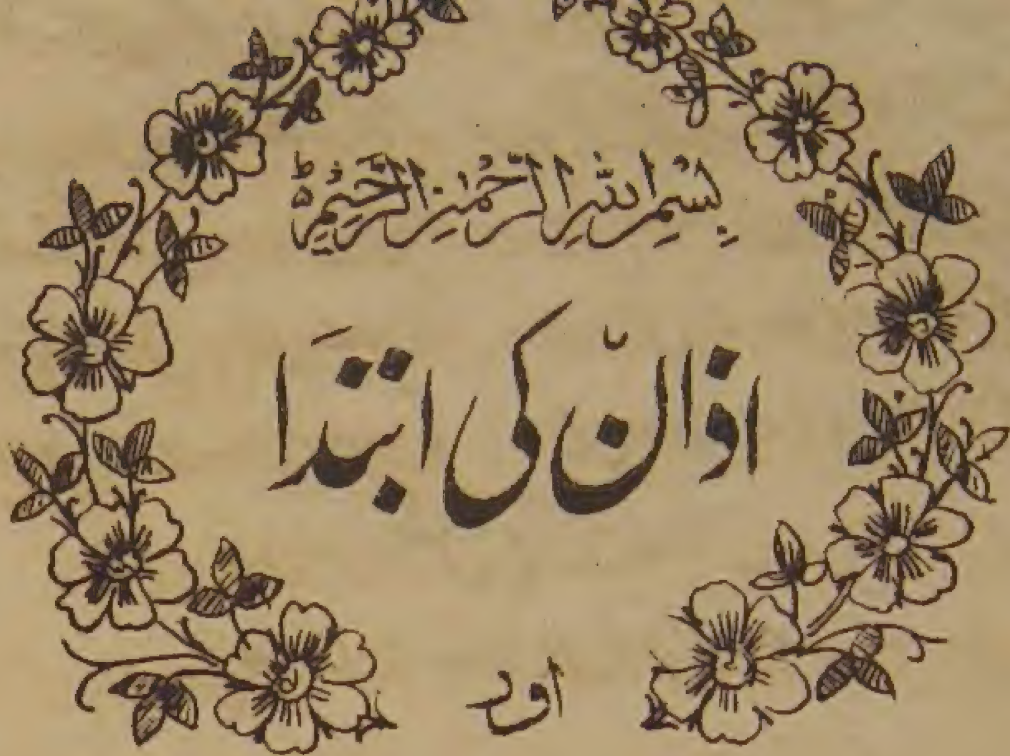 بِسْمِ اللهِ الرَّحْمٰنِ الرَّحِيْمِ ط
اذان کی ابتدا
اور